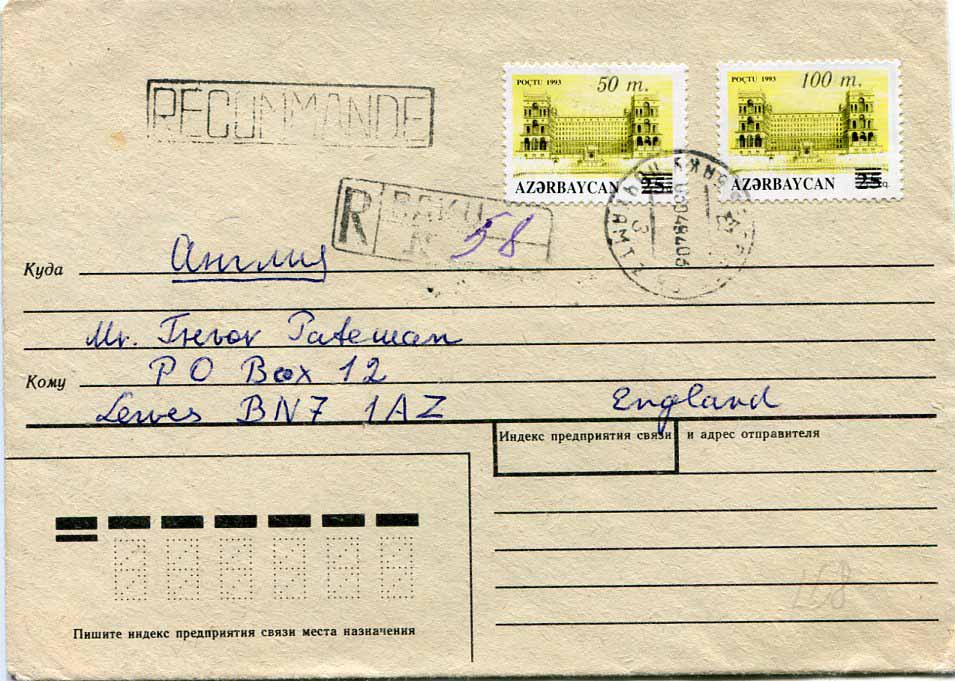 RECOMMANDE
POÇTU 1993 50 m.
AZƏRBAYCAN 25
POÇTU 1993 100 m.
AZƏRBAYCAN 25
R BAKU
58
Куда Англия
Mr. Trevor Pateman
Кому PO Box 12
Lewes BN7 1AZ England
Индекс предприятия связи и адрес отправителя
Пишите индекс предприятия связи места назначения